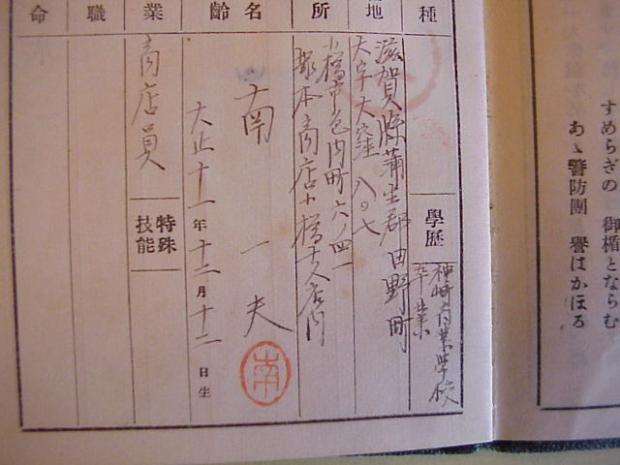 すめらぎの 御楯とならむ
あゝ警防團 譽はかほる
種
學歷
神崎商業學校
卒業
地
滋賀縣蒲生郡日野町
大字大窪八〇七
所
小樽市色内町六ノ四一
塚本商店小樽支店内
名
南一夫
南
齡
大正十一年十二月十二日生
業
商店員
特殊技能
職
命